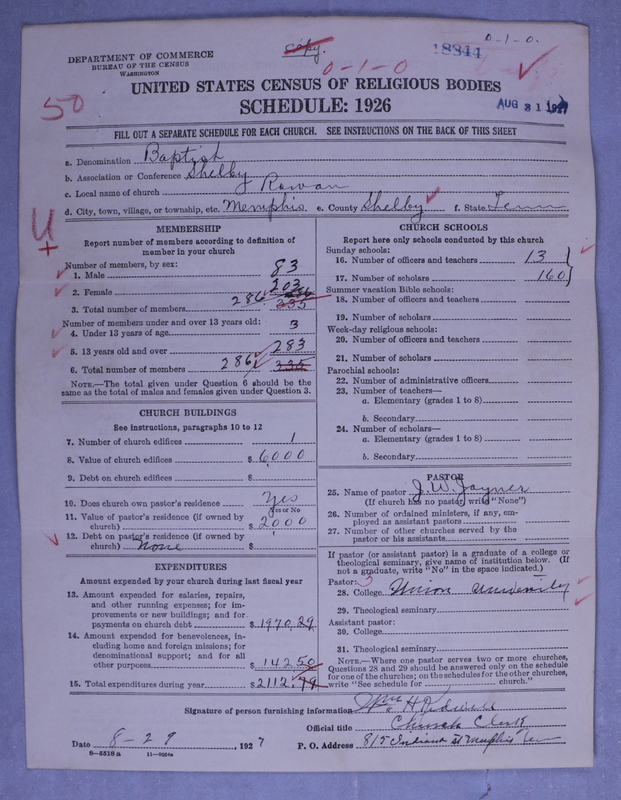 copy.
0-1-0.
18844
DEPARTMENT OF COMMERCE
BUREAU OF THE CENSUS
WASHINGTON
0-1-0
UNITED STATES CENSUS OF RELIGIOUS BODIES
50
SCHEDULE: 1926
AUG 31 1927
FILL OUT A SEPARATE SCHEDULE FOR EACH CHURCH. SEE INSTRUCTIONS ON THE BACK OF THIS SHEET
a. Denomination Baptist
b. Association or Conference Shelby
c. Local name of church Rowan
d. City, town, village, or township, etc. Memphis e. County Shelby f. State Tenn
MEMBERSHIP
Report number of members according to definition of
member in your church
Number of members, by sex:
1. Male 83
2. Female 203
3. Total number of members 286
Number of members under and over 13 years old:
4. Under 13 years of age 3
5. 13 years old and over 283
6. Total number of members 286
NOTE.—The total given under Question 6 should be the
same as the total of males and females given under Question 3.
CHURCH BUILDINGS
See instructions, paragraphs 10 to 12
7. Number of church edifices 1
8. Value of church edifices $ 6000
9. Debt on church edifices $
10. Does church own pastor's residence? Yes
Yes or No
11. Value of pastor's residence (if owned by
church) $ 2000
12. Debt on pastor's residence (if owned by
church) None $
EXPENDITURES
Amount expended by your church during last fiscal year
13. Amount expended for salaries, repairs,
and other running expenses; for im-
provements or new buildings; and for
payments on church debt $ 1970.29
14. Amount expended for benevolences, in-
cluding home and foreign missions; for
denominational support; and for all
other purposes $ 142.50
15. Total expenditures during year $ 2112.79
CHURCH SCHOOLS
Report here only schools conducted by this church
Sunday schools:
16. Number of officers and teachers 13
17. Number of scholars 160
Summer vacation Bible schools:
18. Number of officers and teachers
19. Number of scholars
Week-day religious schools:
20. Number of officers and teachers
21. Number of scholars
Parochial schools:
22. Number of administrative officers
23. Number of teachers—
a. Elementary (grades 1 to 8)
b. Secondary
24. Number of scholars—
a. Elementary (grades 1 to 8)
b. Secondary
PASTOR
25. Name of pastor J. W. Joyner
(If church has no pastor, write "None")
26. Number of ordained ministers, if any, em-
ployed as assistant pastors
27. Number of other churches served by the
pastor or his assistants
If pastor (or assistant pastor) is a graduate of a college or
theological seminary, give name of institution below. (If
not a graduate, write "No" in the space indicated.)
Pastor:
28. College Union University
29. Theological seminary
Assistant pastor:
30. College
31. Theological seminary
NOTE.—Where one pastor serves two or more churches,
Questions 28 and 29 should be answered only on the schedule
for one of the churches; on the schedules for the other churches,
write "See schedule for church."
Signature of person furnishing information Wm H
Official title Church Clerk
Date 8-29, 1927 P. O. Address 815 Indiana St Memphis Tenn
8-5518 a 11-9204a